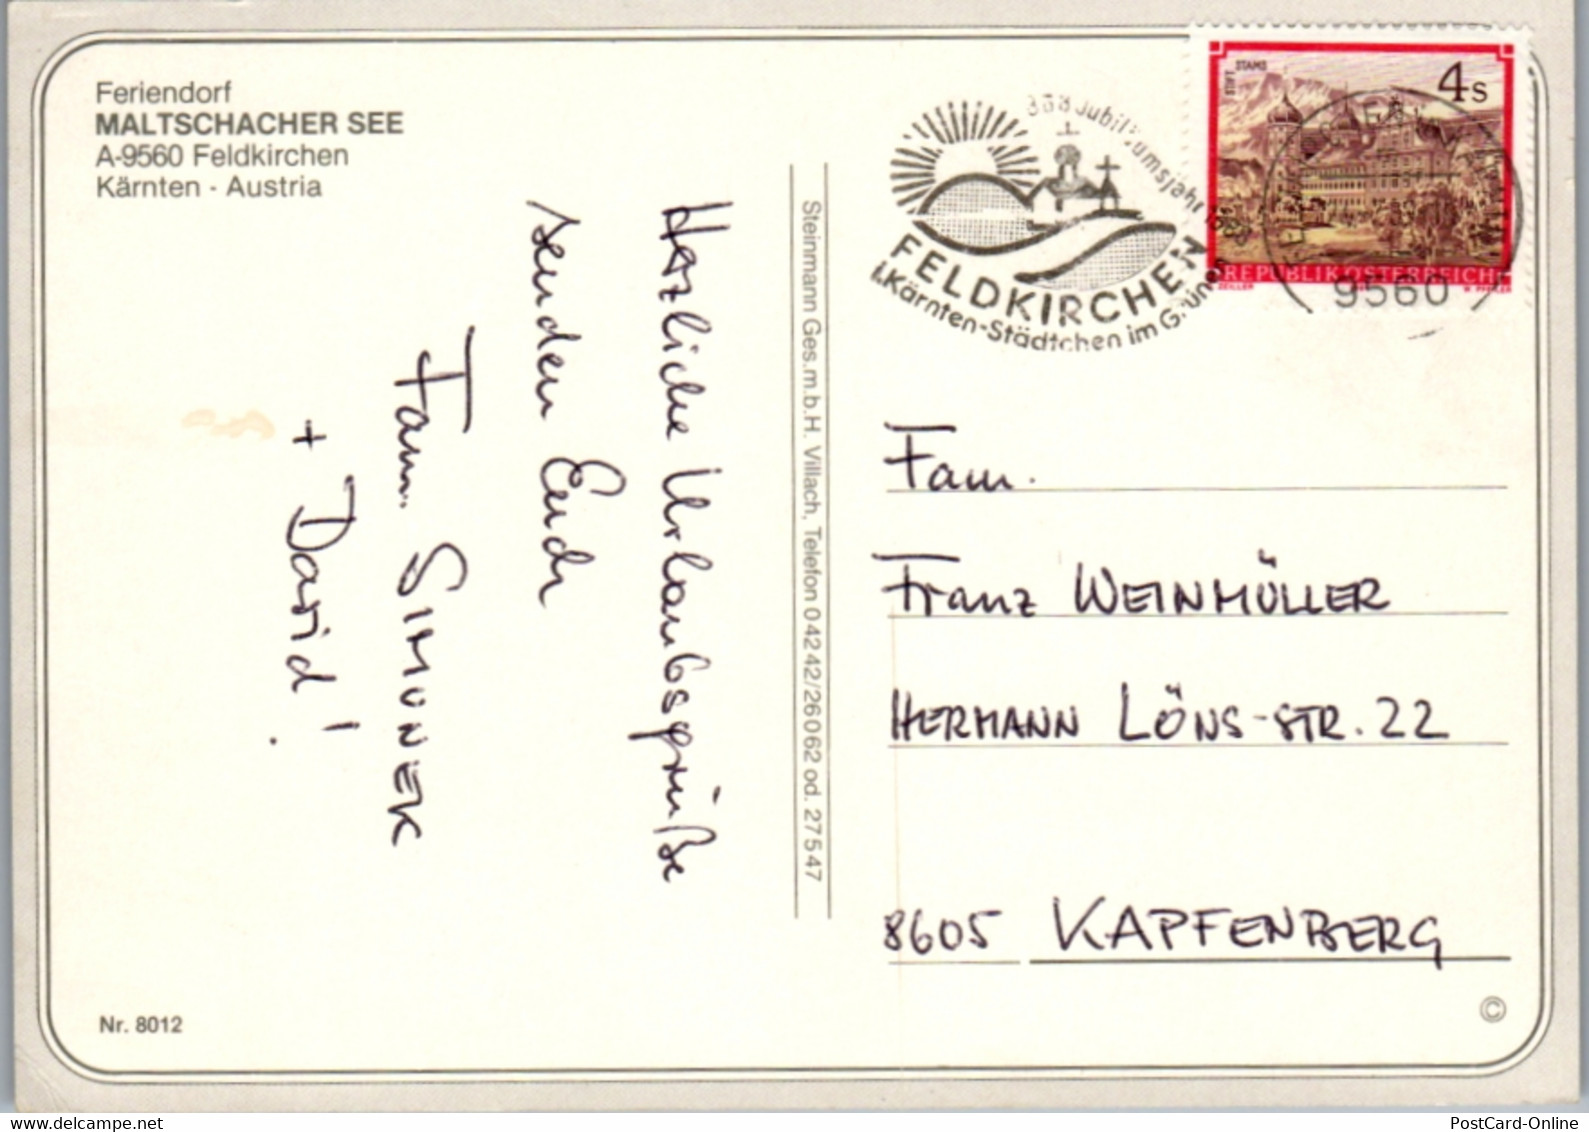 Feriendorf
MALTSCHACHER SEE
A-9560 Feldkirchen
Kärnten - Austria
Herzliche Urlaubsgrüße
senden Euch
Fam. SIMUNEK
+ David!
Nr. 8012
Steinmann Ges.m.b.H. Villach, Telefon 0 42 42/26 0 62 od. 27 5 47
888 Jubiläumsjahr 1988
FELDKIRCHEN
i.Kärnten-Städtchen im Grünen
STIFT STAMS
4 S
REPUBLIK ÖSTERREICH
ZEILLER
9560
Fam.
Franz WEINMÜLLER
HERMANN LÖNS-STR. 22
8605 KAPFENBERG
©
PostCard-Online